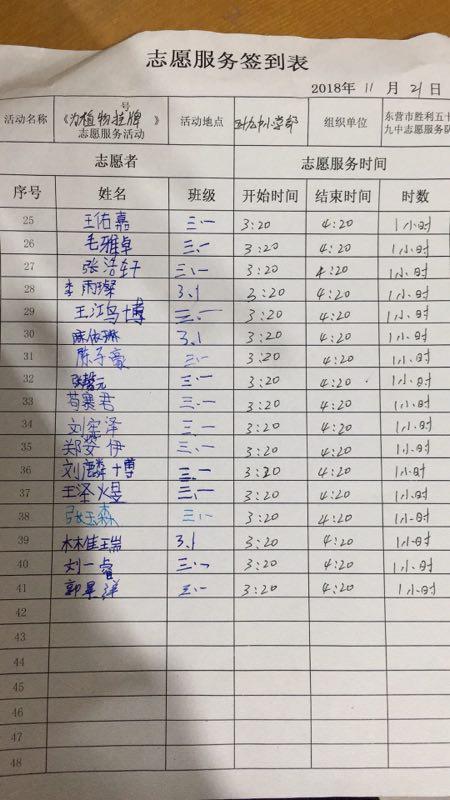 志愿服务签到表
2018年 11 月 21 日
活动名称 《为植物挂牌》 号 志愿服务活动 活动地点 小学部 组织单位 东营市胜利五十九中志愿服务队
志愿者 志愿服务时间
序号 姓名 班级 开始时间 结束时间 时数
25 王佑嘉 三.一 3:20 4:20 1小时
26 毛雅卓 三.一 3:20 4:20 1小时
27 张浩轩 三.一 3:20 4:20 1小时
28 李雨璨 3.1 3:20 4:20 1小时
29 王江鸟博 三.一 3:20 4:20 1小时
30 陈依琳 3.1 3:20 4:20 1小时
31 陈子豪 三.一 3:20 4:20 1小时
32 张馨元 三.一 3:20 4:20 1小时
33 苟寨君 三.一 3:20 4:20 1小时
34 刘宗泽 三.一 3:20 4:20 1小时
35 郑姿伊 三.一 3:20 4:20 1小时
36 刘麟博 三.一 3:20 4:20 1小时
37 王泽煜 三.一 3:20 4:20 1小时
38 张玉森 三.一 3:20 4:20 1小时
39 林佳瑞 3.1 3:20 4:20 1小时
40 刘一睿 三.一 3:20 4:20 1小时
41 郭星洋 三.一 3:20 4:20 1小时
42
43
44
45
46
47
48